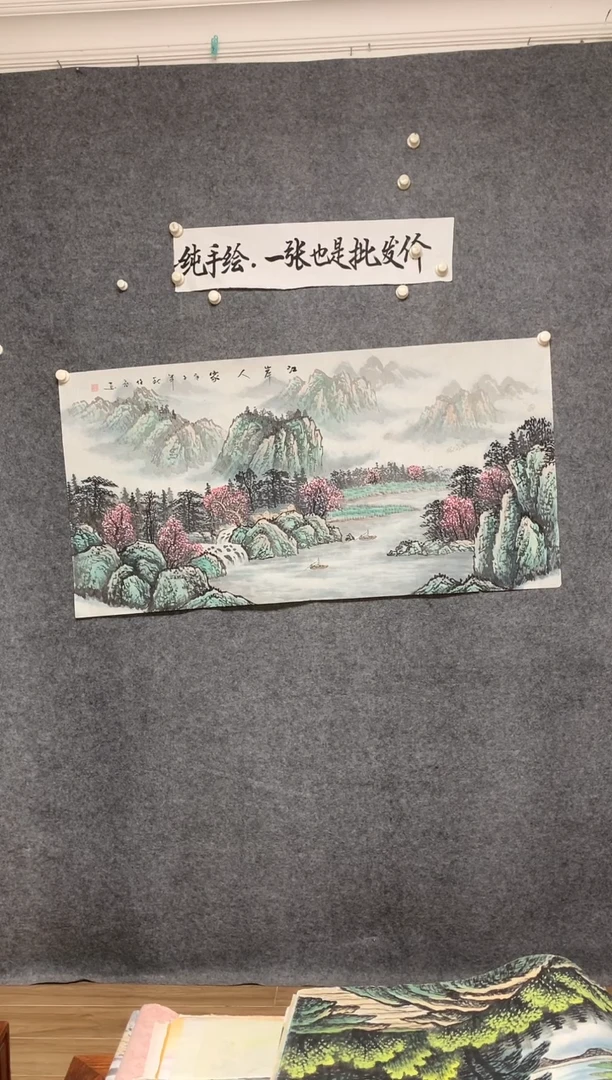 纯手绘.一张也是批发价
江岸人家